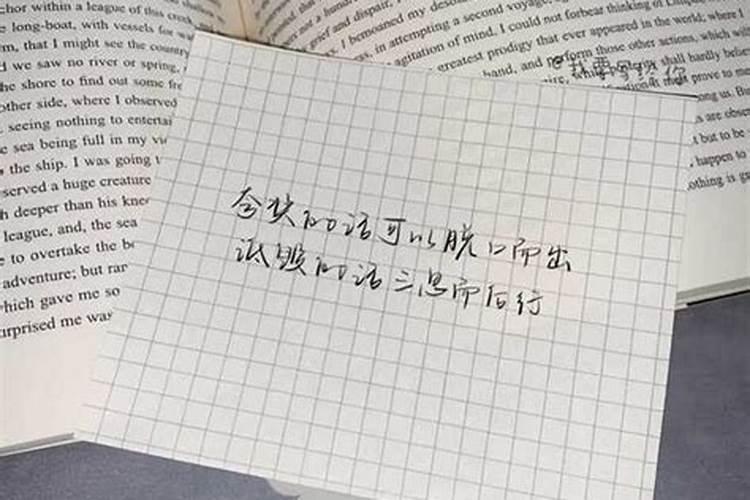 chor within a league of this
long-boat, with vessels for
that I might see the country
we saw no river or spring,
the shore to find out some
other side, where I observed
seeing nothing to
sea being full in my
the ship. I was going
served a huge creature
deeper than his
league, and, the sea
to overtake the
adventure; but
which gave me so
surprised me was
grief and dispair,
I bemoaned my
in attempting a second voyage,
agitation of mind. I could not forbear thinking of
greatest prodigy that ever appeared in the world; where I
hand, and perform those other actions, which
shall hardly
prove to
us. But
are
but to be
happen to
@我要写给你
夸奖的话可以脱口而出
诋毁的话三思而后行